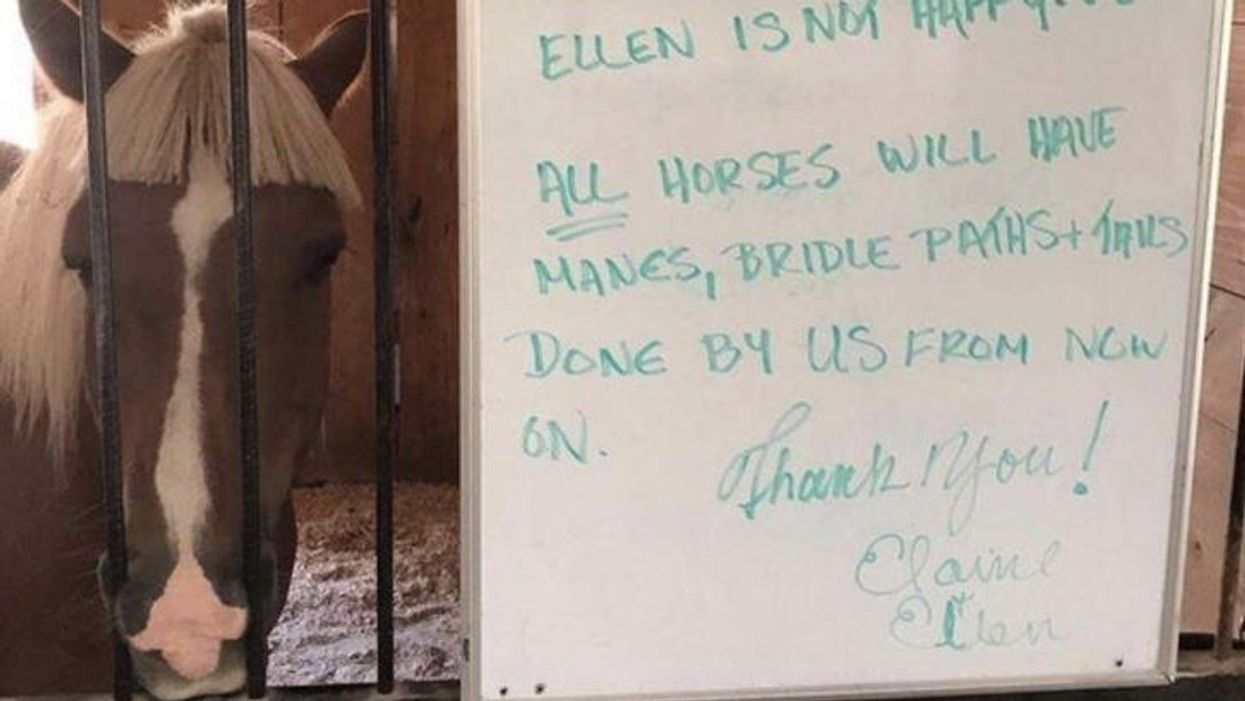 ELLEN IS NOT HAPPY!
ALL HORSES WILL HAVE
MANES, BRIDLE PATHS + TAILS
DONE BY US FROM NOW
ON.
Thank You!
Elaine
+
Ellen